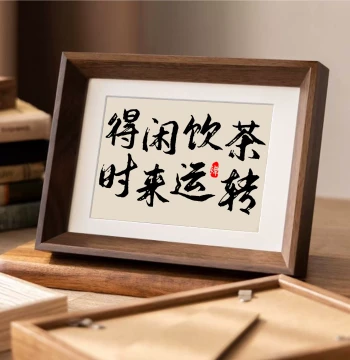 得闲饮茶
时来运转